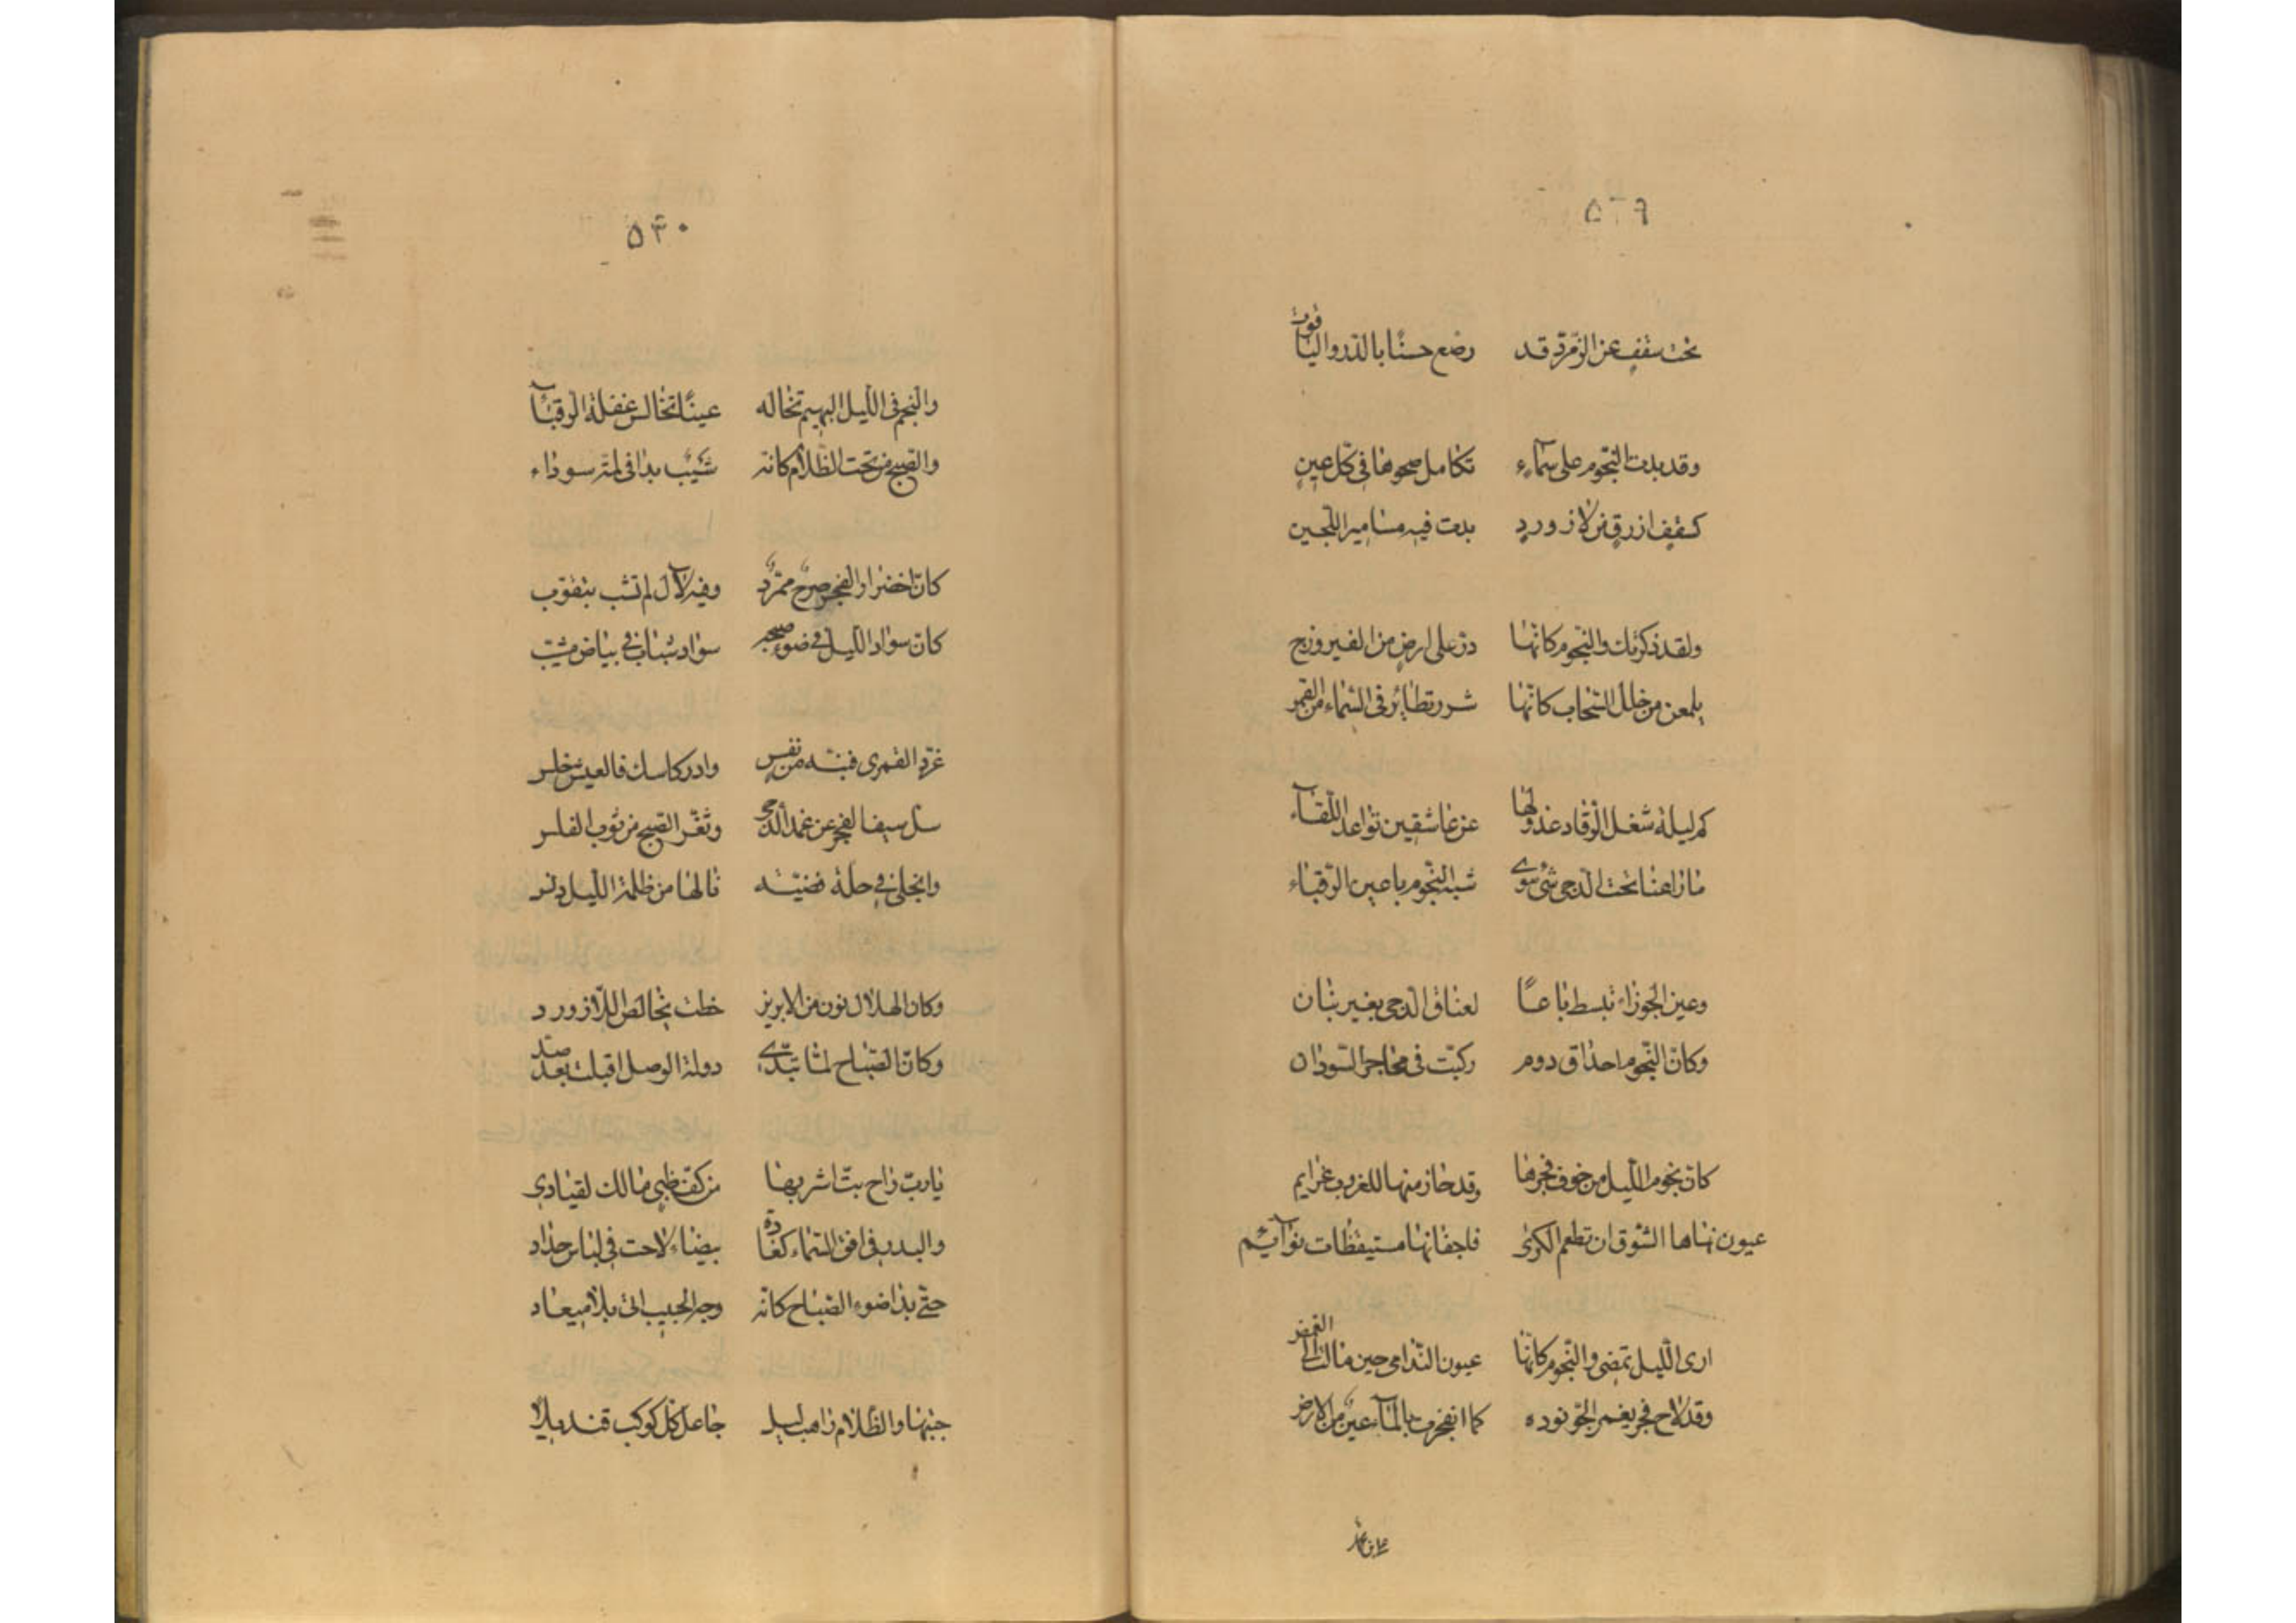 ٥٢٩
تحت سقف من الزمرّد قد رصّع حسنًا بالدّر والياقوت
وقد بدت النّجوم على سمآء تكامل صحوها فى كلّ عين
كسقف ازرق من لازورد بدت فيه مسامير اللّجين
ولقد ذكرتك والنّجوم كانّها درّ على ارض من الفيروزج
يلمعن من خلل السّحاب كانّها شرر تطاير فى السّماء من
كم ليلة شغل الرّقاد عذولها عن عاشقين تواعدا للقآء
شبه النّجوم باعين الرّقباء
تبسط باعًا لعناق الدجى بغير بنان
وكانّ النّجوم احداق روم ركّبت فى محاجر السّودان
كانّ نجوم اللّيل من خوف فجرها وقد حاز منها للغروب عزايم
عيون نهاها الشّوق ان تطعم الكرى فاجفانها مستيقظات نوآئم
ارى اللّيل تمضى والنّجوم كانّها عيون النّدامى حين مالت الى الغمض
وقد لاح فجر يغمر الجوّ نوره كما انفجرت بالمآء عين من الارض
٥٣٠
والنجم فى اللّيل البهيم تخاله عينًا تخالس غفلة الرّقبآ
والصّبح من تحت الظّلام كانّه شيب بدا فى لمّة سوداء
كانّ اخضرار الفجر صرح ممرّد وفيه لآل لم تشب بثقوب
كانّ سواد اللّيل فى ضوء صبحه سواد شباب فى بياض مشيب
غرّد القمرى فنبّه من نفس وادر كاسك فالعيش خلس
سلّ سيف الفجر عن غمد الدّجى الصّبح من ثوب الغلس
وانجلى فى حلّة فضيّة من ظلمة اللّيل دنس
وكان الهلال نون من الابريز خطّت بخالص اللّازورد
وكانّ الصّباح لمّا تبدّى دولة الوصل اقبلت بعد صدّ
ياربّ راح بتّ اشربها من كفّ ظبى مالك لقيادى
والبدر فى افق السّماء كغادة بيضاء لاحت فى لباس حداد
حتّى بدا ضوء الصّباح كانّه وجه الحبيب اتى بلا ميعاد
جئتها والظّلام راهب ليل جاعل كلّ كوكب قنديلا